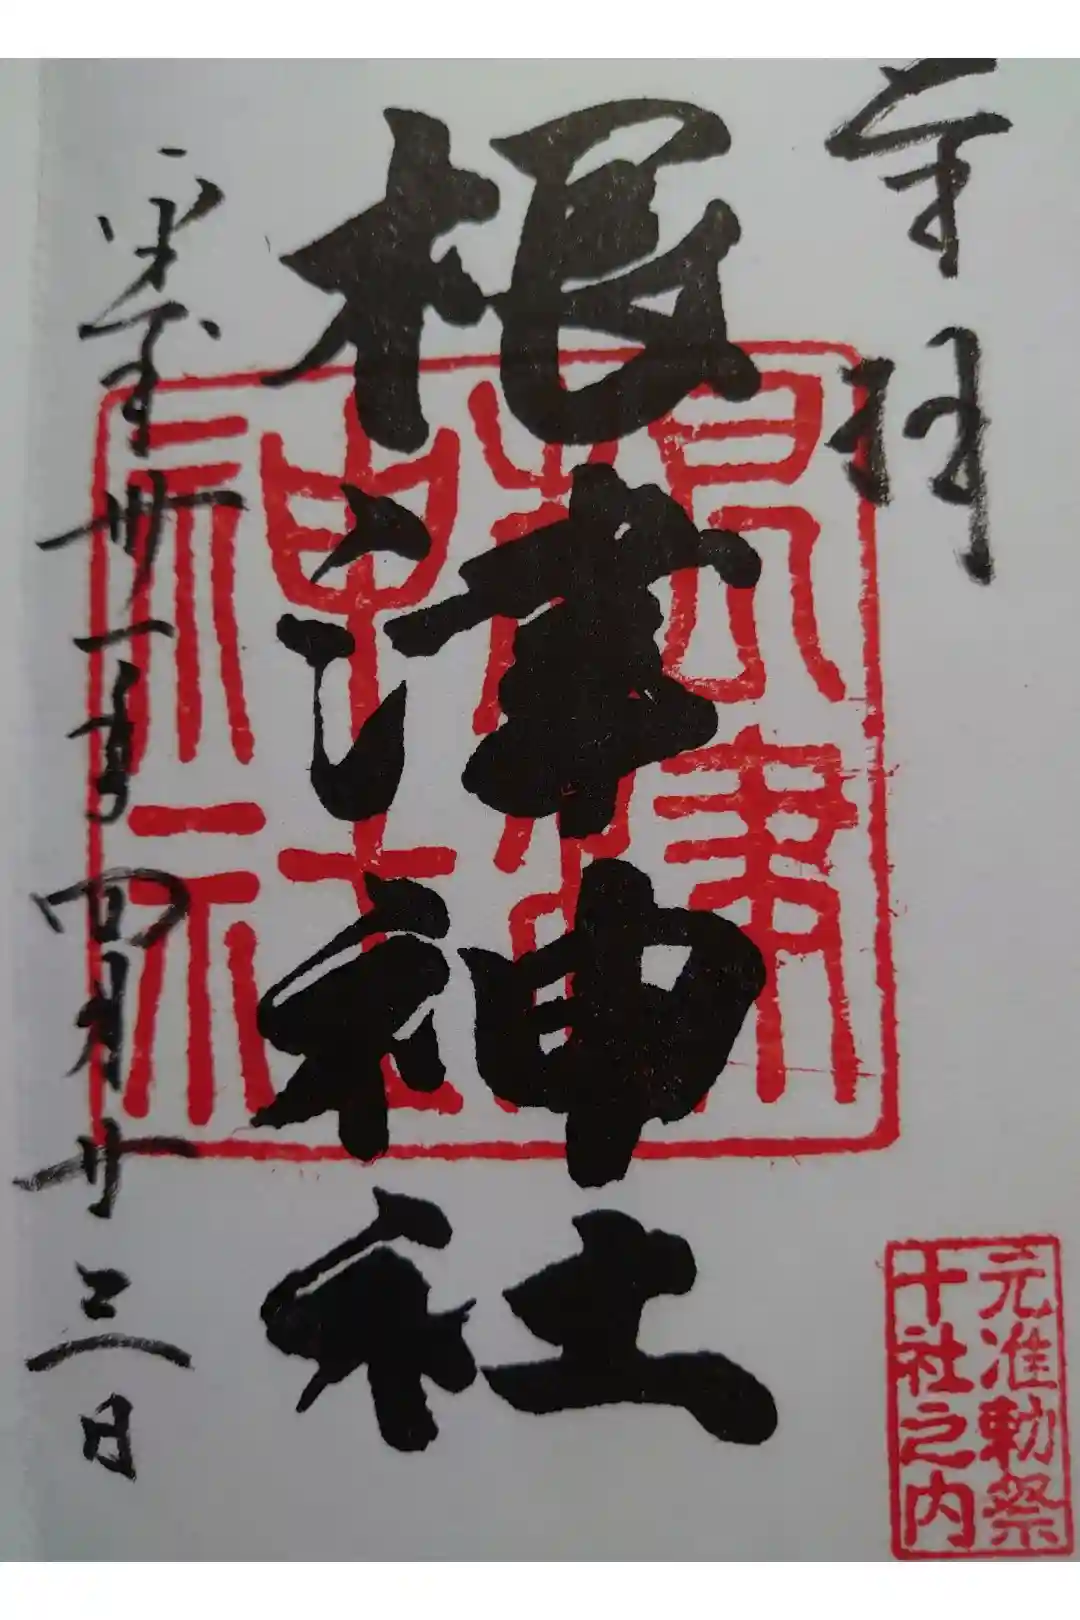 奉拝
根津神社
根津神社
平成卅一年四月廿三日
元准勅祭
十社之内